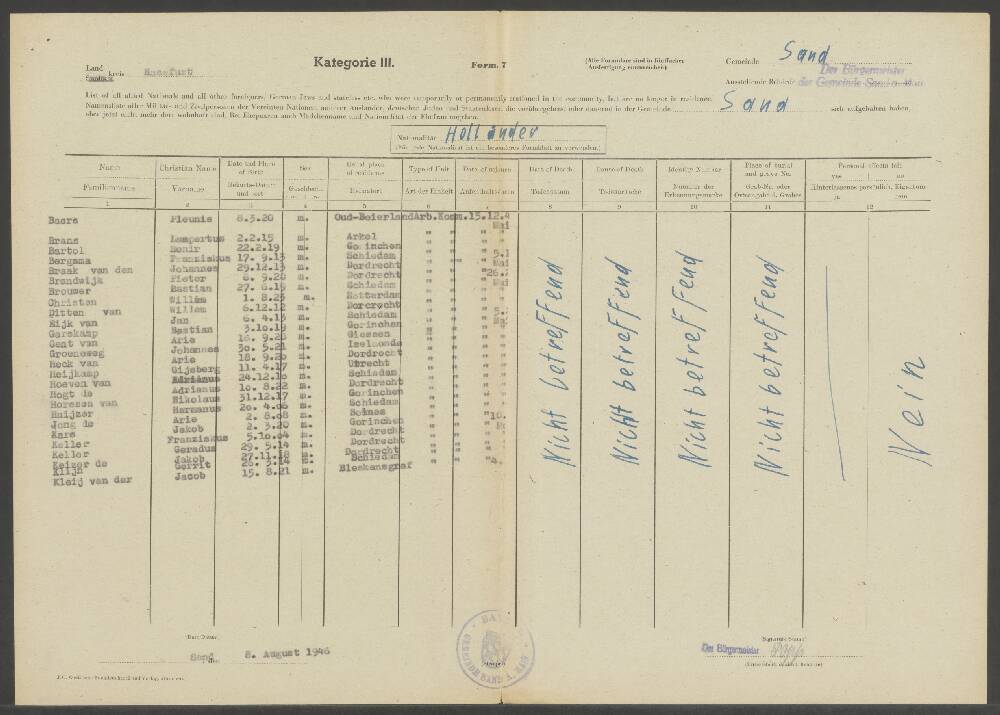 Kategorie III.
Form. 7
(Alle Formulare sind in fünffacher Ausfertigung einzureichen)
Gemeinde Sand
Land kreis Hassfurt
Ausstellende Behörde Der Bürgermeister der Gemeinde Sand a.
List of all allied Nationals and all other foreigners, German Jews and stateless etc. who were temporarily or permanently stationed in the community, but are no longer in residence.
Namensliste aller Militär- und Zivilpersonen der Vereinten Nationen, anderer Ausländer, deutscher Juden und Staatenloser, die vorübergehend oder dauernd in der Gemeinde Sand sich aufgehalten haben,
aber jetzt nicht mehr dort wohnhaft sind. Bei Ehepaaren auch Mädchenname und Nationalität der Ehefrau angeben.
Nationalität Holländer
(Für jede Nationalität ist ein besonderes Formular zu verwenden.)
Name Christian Name Date and Place of Birth Sex place of residence Type of Unit Date of Date of Death Cause of Death Identity Number Place of burial and grave No. Personal effects left
yes no
Familienname Vorname Geburts-Datum und -ort Geschlecht Heimatort Art der Einheit Aufenthalts Todesdatum Todesursache Nummer der Erkennungsmarke Grab-No. oder Ortsangabe d. Grabes Hinterlassenes persönlich. Eigentum
ja nein
1 2 3 4 5 6 7 8 9 10 11 12
Baars Pleunis 8.3.20 m. Oud-Beierland Arb.Komm. 15.12.4
Mai
Brans Lampertus 2.2.15 m. Arkel " "
Bartol Bonir 22.2.19 m. Gorinchen " "
Bergsma Franziskus 17. 9.13 m. Schiedam " "
Braak van den Johannes 29.12.13 m. Dordrecht " "
Brandwijk Pieter 6. 9.20 m. Dordrecht " "
Brouwer Bastian 27. 6.19 m. Schiedam " "
Christen Willem 1. 8.23 m. Rotterdam " "
Ditten van Willem 6.12.12 m. Dorcrecht " "
Eijk van Jan 6. 4.13 m. Schiedam " "
Garskamp Bastian 3.10.19 m. Gorinchen " "
Gent van Arie m. Giessen " "
Groeneweg Johannes 30. 5.21 m. " "
Heck van Arie 18. 9.20 m. Dordrecht " "
Heijkamp Gijsberg 11. 4.17 m. Utrecht " "
Hoeven van Adrianus 24.12.10 m. Schiedam " "
Hogt de Adrianus 10. 8.22 m. Dordrecht " "
Horssen van Nikolaus 31.12.17 m. Gorinchen " "
Huijzer Harmanus 20. 4.06 m. Schiedam " "
Jong de Arie 2. 8.08 m. " "
Kars Jakob 2. 3.20 m. Gorinchen " "
Keller Franziskus 5.10.04 m. Dordrecht " "
Keller Geradus 29. 5.14 m. Dordrecht " "
Keizer de Jakob 27.11.18 m. Dordrecht " "
Klijn Gerrit 26. 3.14 m. Schiedam " "
Kleij van der Jacob 15. 8.21 m. Bleskensgraf
Nicht betreffend
Nicht betreffend
Nicht betreffend
Nicht betreffend
Nein
Sand 8. August 1946
BAYERN
GEMEINDE SAND A. MAIN
Der Bürgermeister